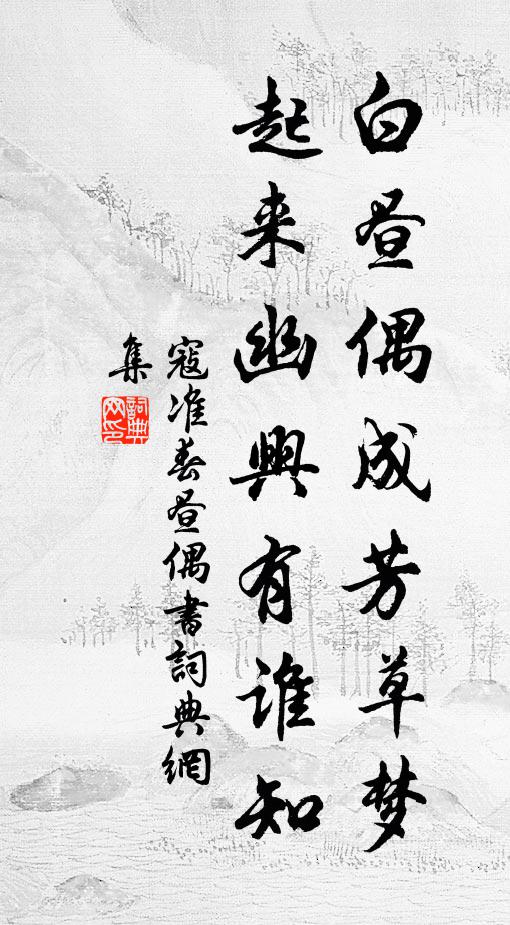 白昼偶成芳草梦
起来幽興有谁知
寇准春昼偶書詞典網
集
詞典网印